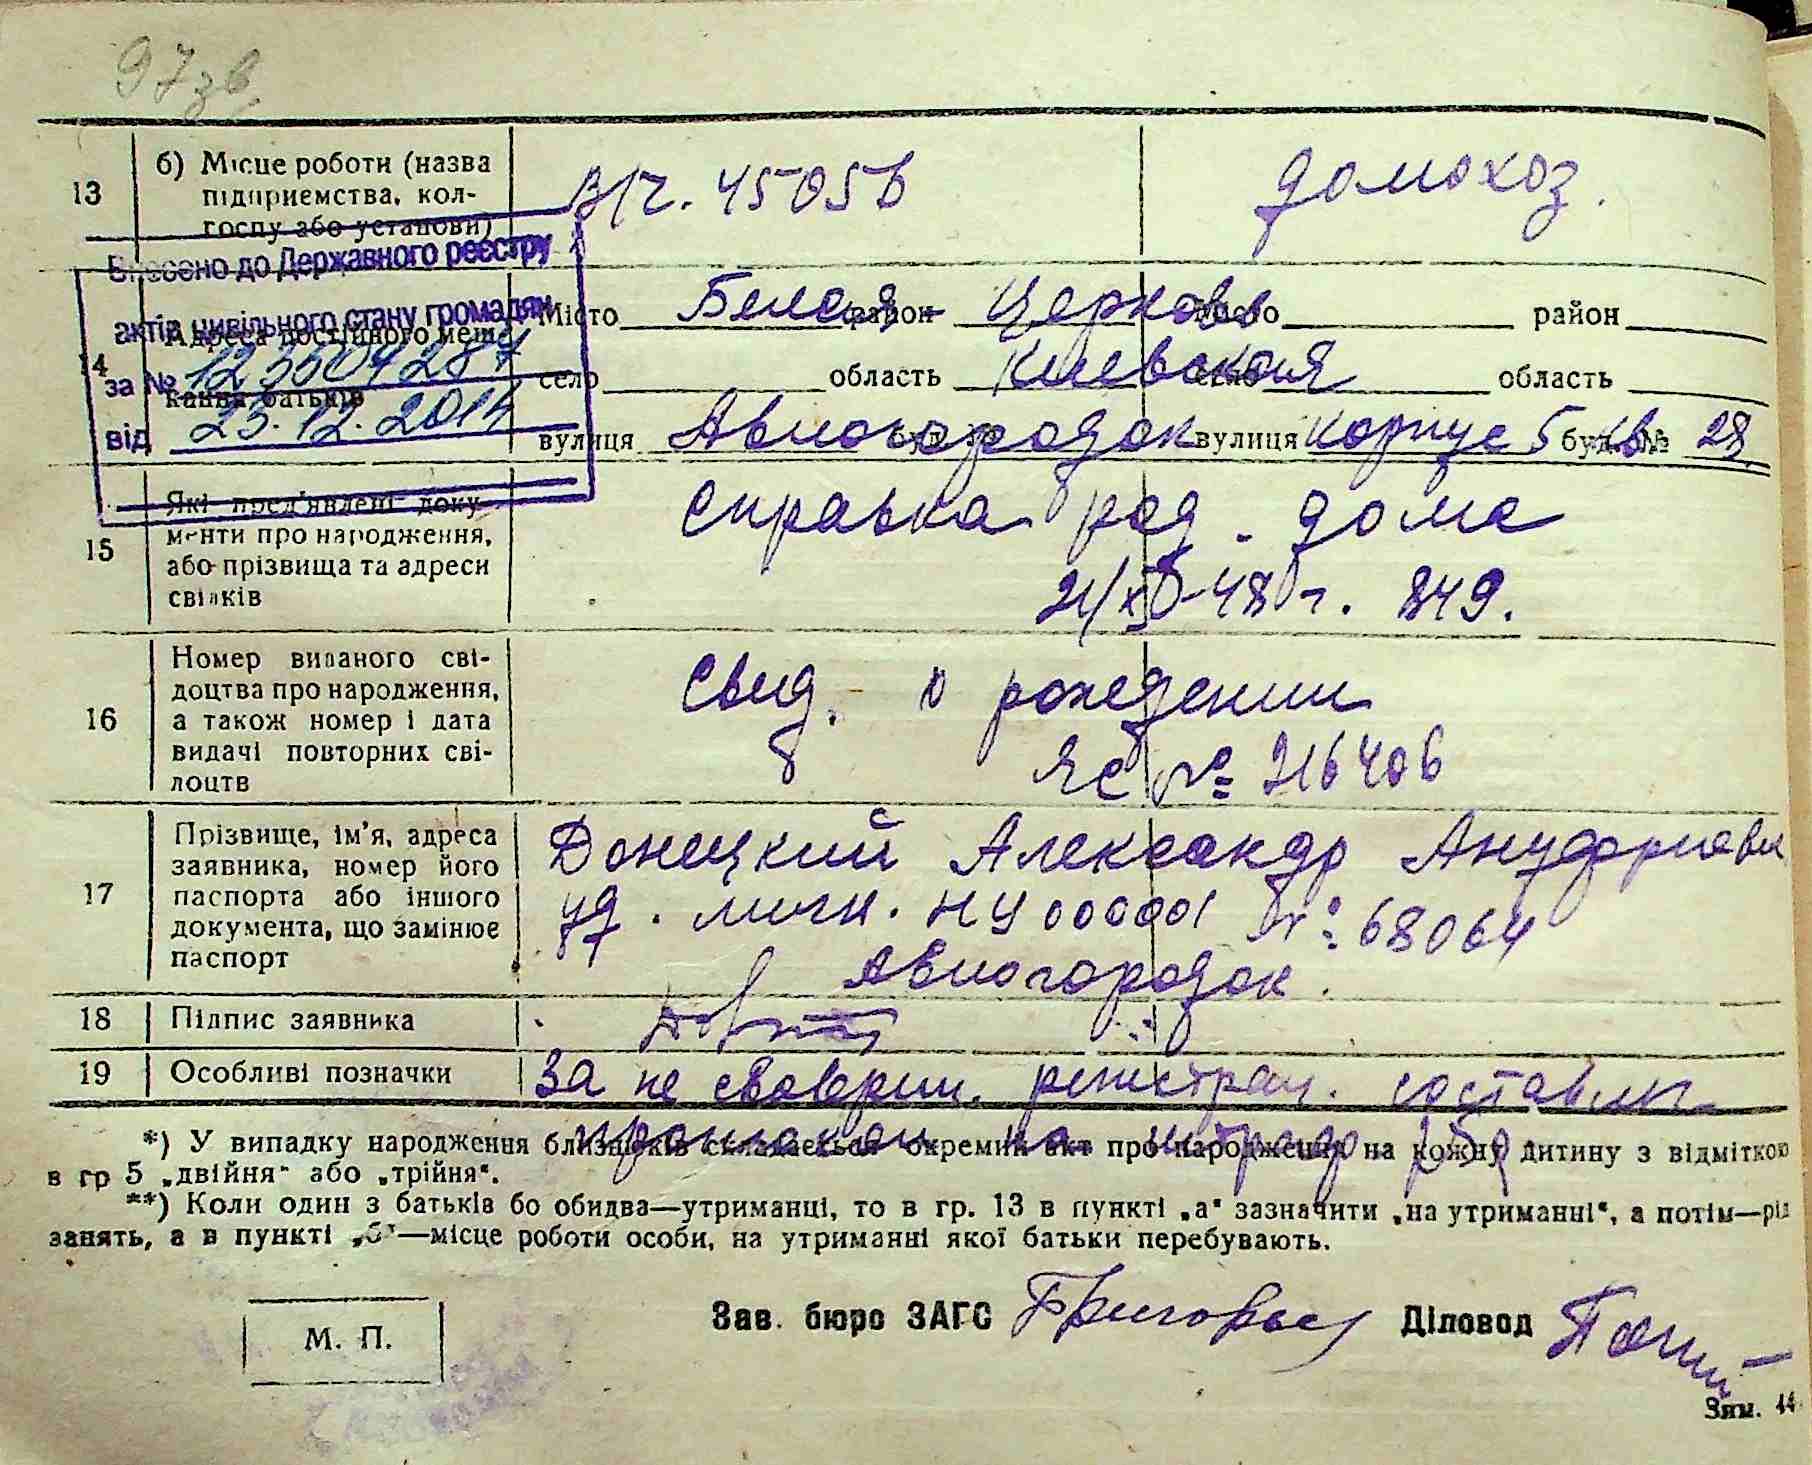 97 зв.
13 б) Місце роботи (назва підприємства, колгоспу або установи) в/ч. 45056 домохоз.
Внесено до Державного реєстру
актів цивільного стану громадян
за № 12350428
від 23.12.2014
14 Адреса постійного мешкання батьків
Місто Белая район Церковь Місто район
село область Киевская село область
вулиця Авиогородок вулиця корпус 5 буд. кв № 28
15 Які пред'явлені документи про народження, або прізвища та адреси свідків
Справка род. дома
21/XI-48 г. 849.
16 Номер виданого свідоцтва про народження, а також номер і дата видачі повторних свідоцтв
Свид. о рождении
ЯС № 216406
17 Прізвище, ім'я, адреса заявника, номер його паспорта або іншого документа, що замінює паспорт
Донецкий Александр
уд. личн. НУ 000001 № 68064
Авиогородок.
18 Підпис заявника
19 Особливі позначки За не своеврем. регистрац. составлен
протокол на штраф
*) У випадку народження близнюків складається окремий акт про народження на кожну дитину з відміткою
в гр 5 „двійня" або „трійня".
**) Коли один з батьків бо обидва—утриманці, то в гр. 13 в пункті „а" зазначити „на утриманні", а потім—рід
занять, а в пункті „б"—місце роботи особи, на утриманні якої батьки перебувають.
М. П.
Зав. бюро ЗАГС Діловод
Зам. 44